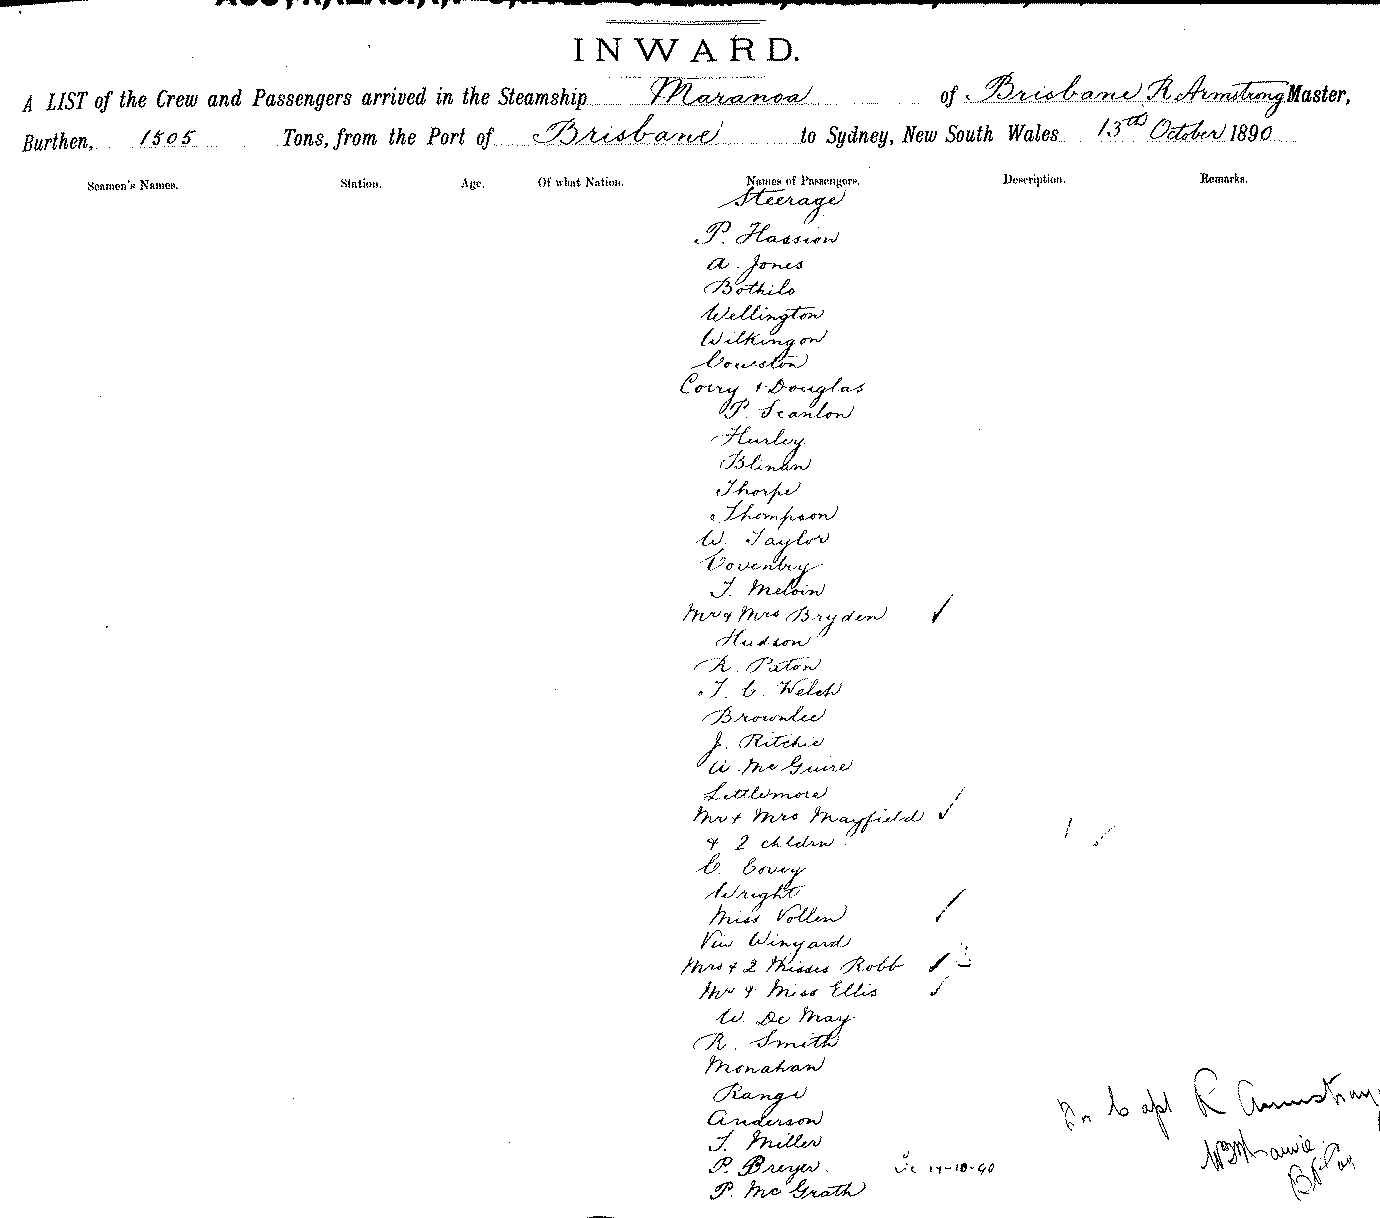 INWARD.
A LIST of the Crew and Passengers arrived in the Steamship Maranoa of Brisbane R Armstrong Master,
Burthen, 1505 Tons, from the Port of Brisbane to Sydney, New South Wales 13th October 1890
Seamen's Names. Station. Age. Of what Nation. Names of Passengers. Description. Remarks.
Steerage
P. Hassion
A. Jones
Bothilo
Wellington
Wilkingon
Couston
Corry & Douglas
P. Scanlon
Hurley
Blinan
Thorpe
Thompson
W. Taylor
Coventry
T. Melvin
Mr & Mrs Bryden
Hudson
R. Paton
T. C. Welch
Brownlee
J. Ritchie
W. McGuire
Littlemore
Mr & Mrs Mayfield
& 2 chldrn
C. Covey
Wright
Miss Vollen
Winyard
Mrs & 2 Misses Robb
Mr & Miss Ellis
W. De May
R. Smith
Monahan
Range
Anderson
T. Miller
P. Breyer. 14-10-90
P. McGrath
Capt R Armstrong